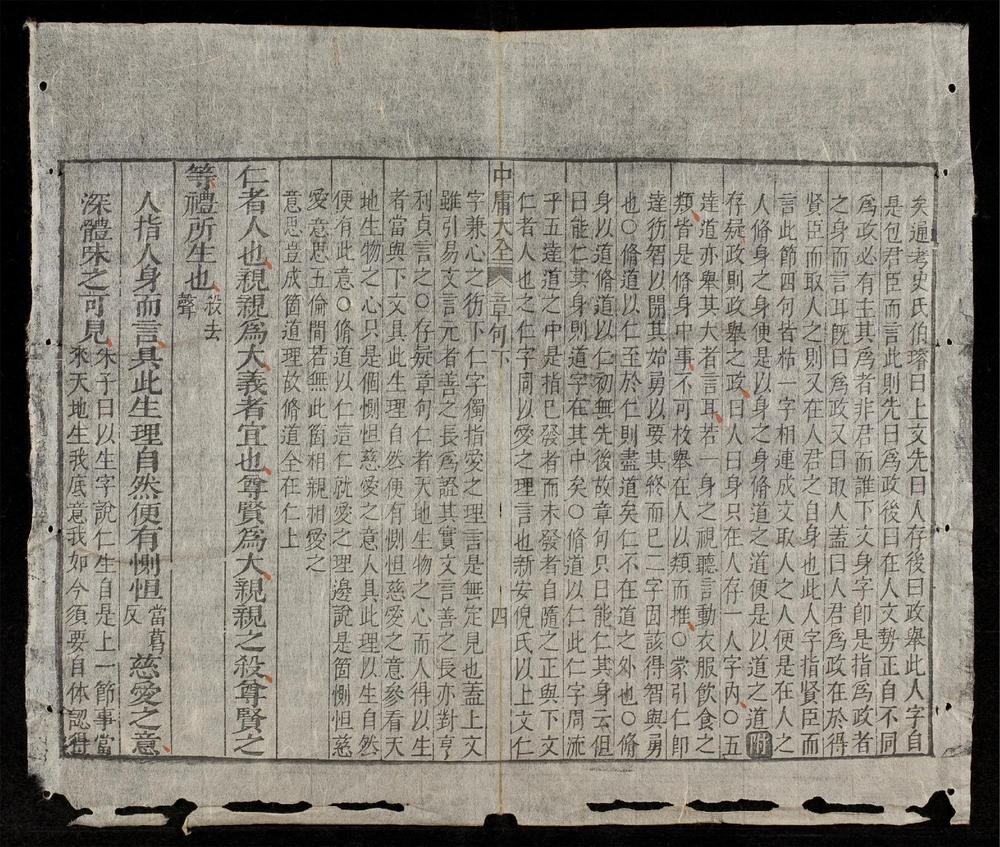 矣通考史氏伯璿曰上文先曰人存後曰政舉此人字自
是包君臣而言此則先曰爲政後曰在人文勢正自不同
爲政必有主其爲者非君而誰下文身字卽是指爲政者
之身而言耳旣曰爲政又曰取人蓋曰人君爲政在於得
賢臣而取人之則又在人君之自身也此人字指賢臣而
言此節四句皆粘一字相連成文取人之人便是在人之
人脩身之身便是以身之身脩道之道便是以道之道附
存疑政則政舉之政人曰身只在人存一人字內○五
達道亦舉其大者言耳若一身之視聽言動衣服飲食之
類皆是脩身中事不可枚舉在人以類而推○蒙引仁卽
達德智以開其始勇以要其終而已二字固該得智與勇
也○脩道以仁至於仁則盡道矣仁不在道之外也○脩
身以道脩道以仁初無先後故章句只曰能仁其身云但
曰能仁其身則道字在其中矣○脩道以仁此仁字周流
乎五達道之中是指已發者而未發者自隨之正與下文
仁者人也之仁字同以愛之理言也新安倪氏以上文仁
中庸大全 章句下 四
字兼心之德下仁字獨指愛之理言是無定見也蓋上文
雖引易文言元者善之長爲證其實文言善之長亦對亨
利貞言之○存疑章句仁者天地生物之心而人得以生
者當與下文具此生理自然便有惻怛慈愛之意參看天
地生物之心只是個惻怛慈愛之意人具此理以生自然
便有此意○脩道以仁這仁就愛之理邊說是箇惻怛慈
愛意思五倫間若無此箇相親相愛之
意思豈成箇道理故脩道全在仁上
仁者人也親親爲大義者宜也尊賢爲大親親之殺尊賢之
等禮所生也殺去聲
人指人身而言具此生理自然便有惻怛當葛反慈愛之意
深體味之可見朱子曰以生字說仁生自是上一節事當來天地生我底意我如今須要自体認得